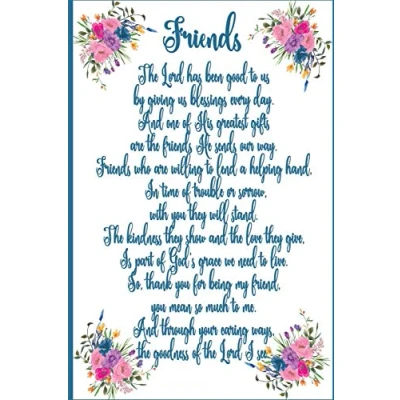 Friends
The Lord has been good to us
by giving us blessings every day.
And one of His greatest gifts
are the friends He sends our way.
Friends who are willing to lend a helping hand,
In time of trouble or sorrow,
with you they will stand.
The kindness they show and the love they give,
Is part of God's grace we need to live.
So, thank you for being my friend,
you mean so much to me.
And through your caring ways,
the goodness of the Lord I see.